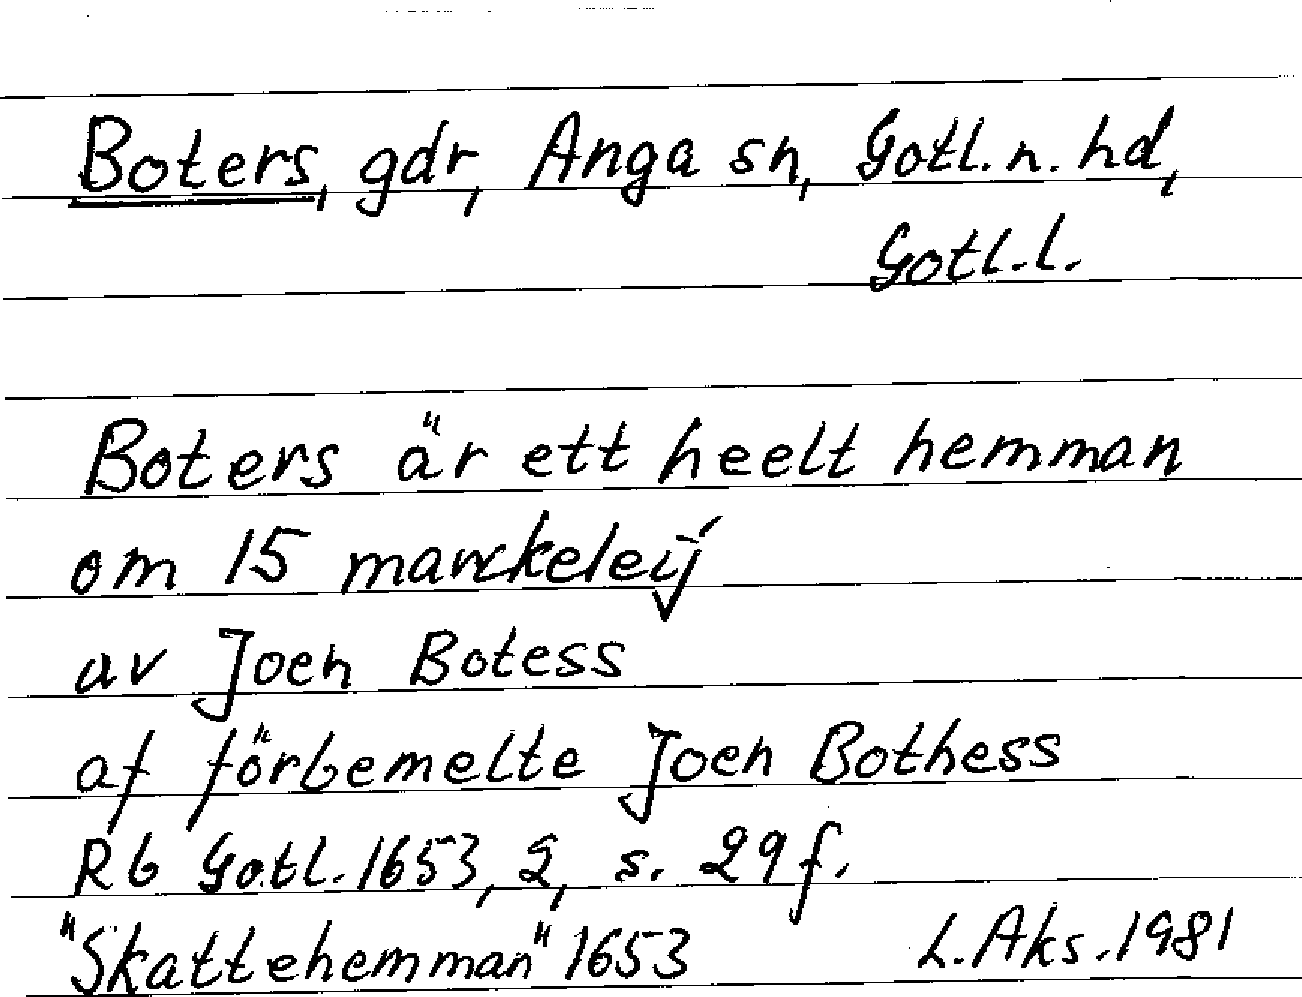 Boters, gdr, Anga sn, Gotl. n. hd,
Gotl. l.
Boters är ett heelt hemman
om 15 marckeleij
av Joen Botess
af förbemelte Joen Bothess
Rb Gotl. 1653, 2, s. 29 f.
"Skattehemman" 1653 L. Aks. 1981